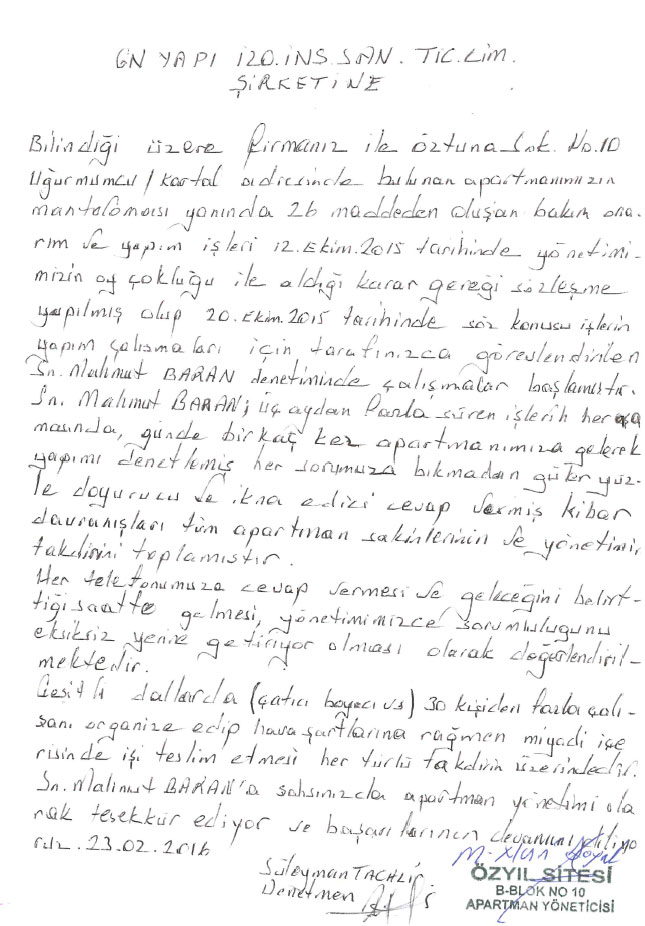 GN YAPI İZO.İNŞ.SAN. TİC.LİM.
ŞİRKETİNE
Bilindiği üzere firmanız ile Öztuna Sok. No.10
Uğurmumcu / Kartal adresinde bulunan apartmanımızın
mantoloması yanında 26 maddeden oluşan bakım ona-
rım ve yapım işleri 12.Ekim.2015 tarihinde yönetimi-
mizin oy çokluğu ile aldığı karar gereği sözleşme
yapılmış olup 20.Ekim.2015 tarihinde söz konusu işlerin
yapım çalışmaları için tarafınızca görevlendirilen
Sn. Mahmut BARAN denetiminde çalışmalar başlamıştır.
Sn. Mahmut BARAN; üç aydan fazla süren işlerin her aşa
masında, günde birkaç kez apartmanımıza gelerek
yapımı denetlemiş her sorumuza bıkmadan güler yüz-
le doyurucu ve ikna edici cevap vermiş kibar
davranışları tüm apartman sakinlerinin ve yönetimin
takdirini toplamıştır.
Her telefonumuza cevap vermesi ve geleceğini belirt-
tiği saatte gelmesi, yönetimimizce sorumluluğunu
eksiksiz yerine getiriyor olması olarak değerlendiril-
mektedir.
Çeşitli dallarda (çatıcı boyacı vs) 30 kişiden fazla çalı-
şanı organize edip hava şartlarına rağmen miyadı içe
risinde işi teslim etmesi her türlü takdirin üzerindedir.
Sn. Mahmut BARAN'a şahsınızda apartman yönetimi ola
rak teşekkür ediyor ve başarılarının devamını diliyo
ruz. 23.02.2016
Süleyman
Denetmen
ÖZYIL SİTESİ
B-BLOK NO 10
APARTMAN YÖNETİCİSİ